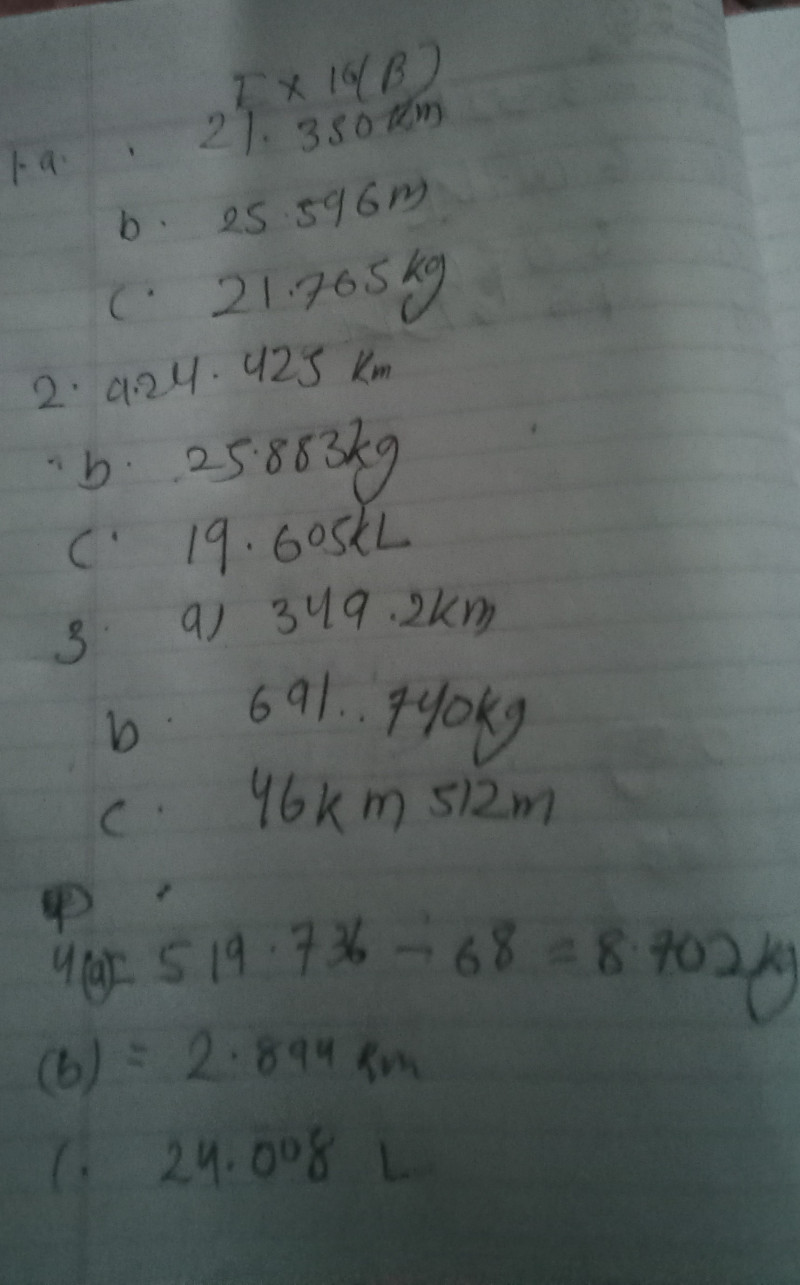 Ix 16(B)
1.a. 21.350 Km
b. 25.596m
c. 21.765kg
2. a.24.425 Km
b. 25.883kg
c. 19.605kL
3. a) 349.2km
b. 691..740kg
c. 46km 512m
4(a)= 519.736 - 68 = 8.702kg
(b) = 2.894 km
c. 24.008 L